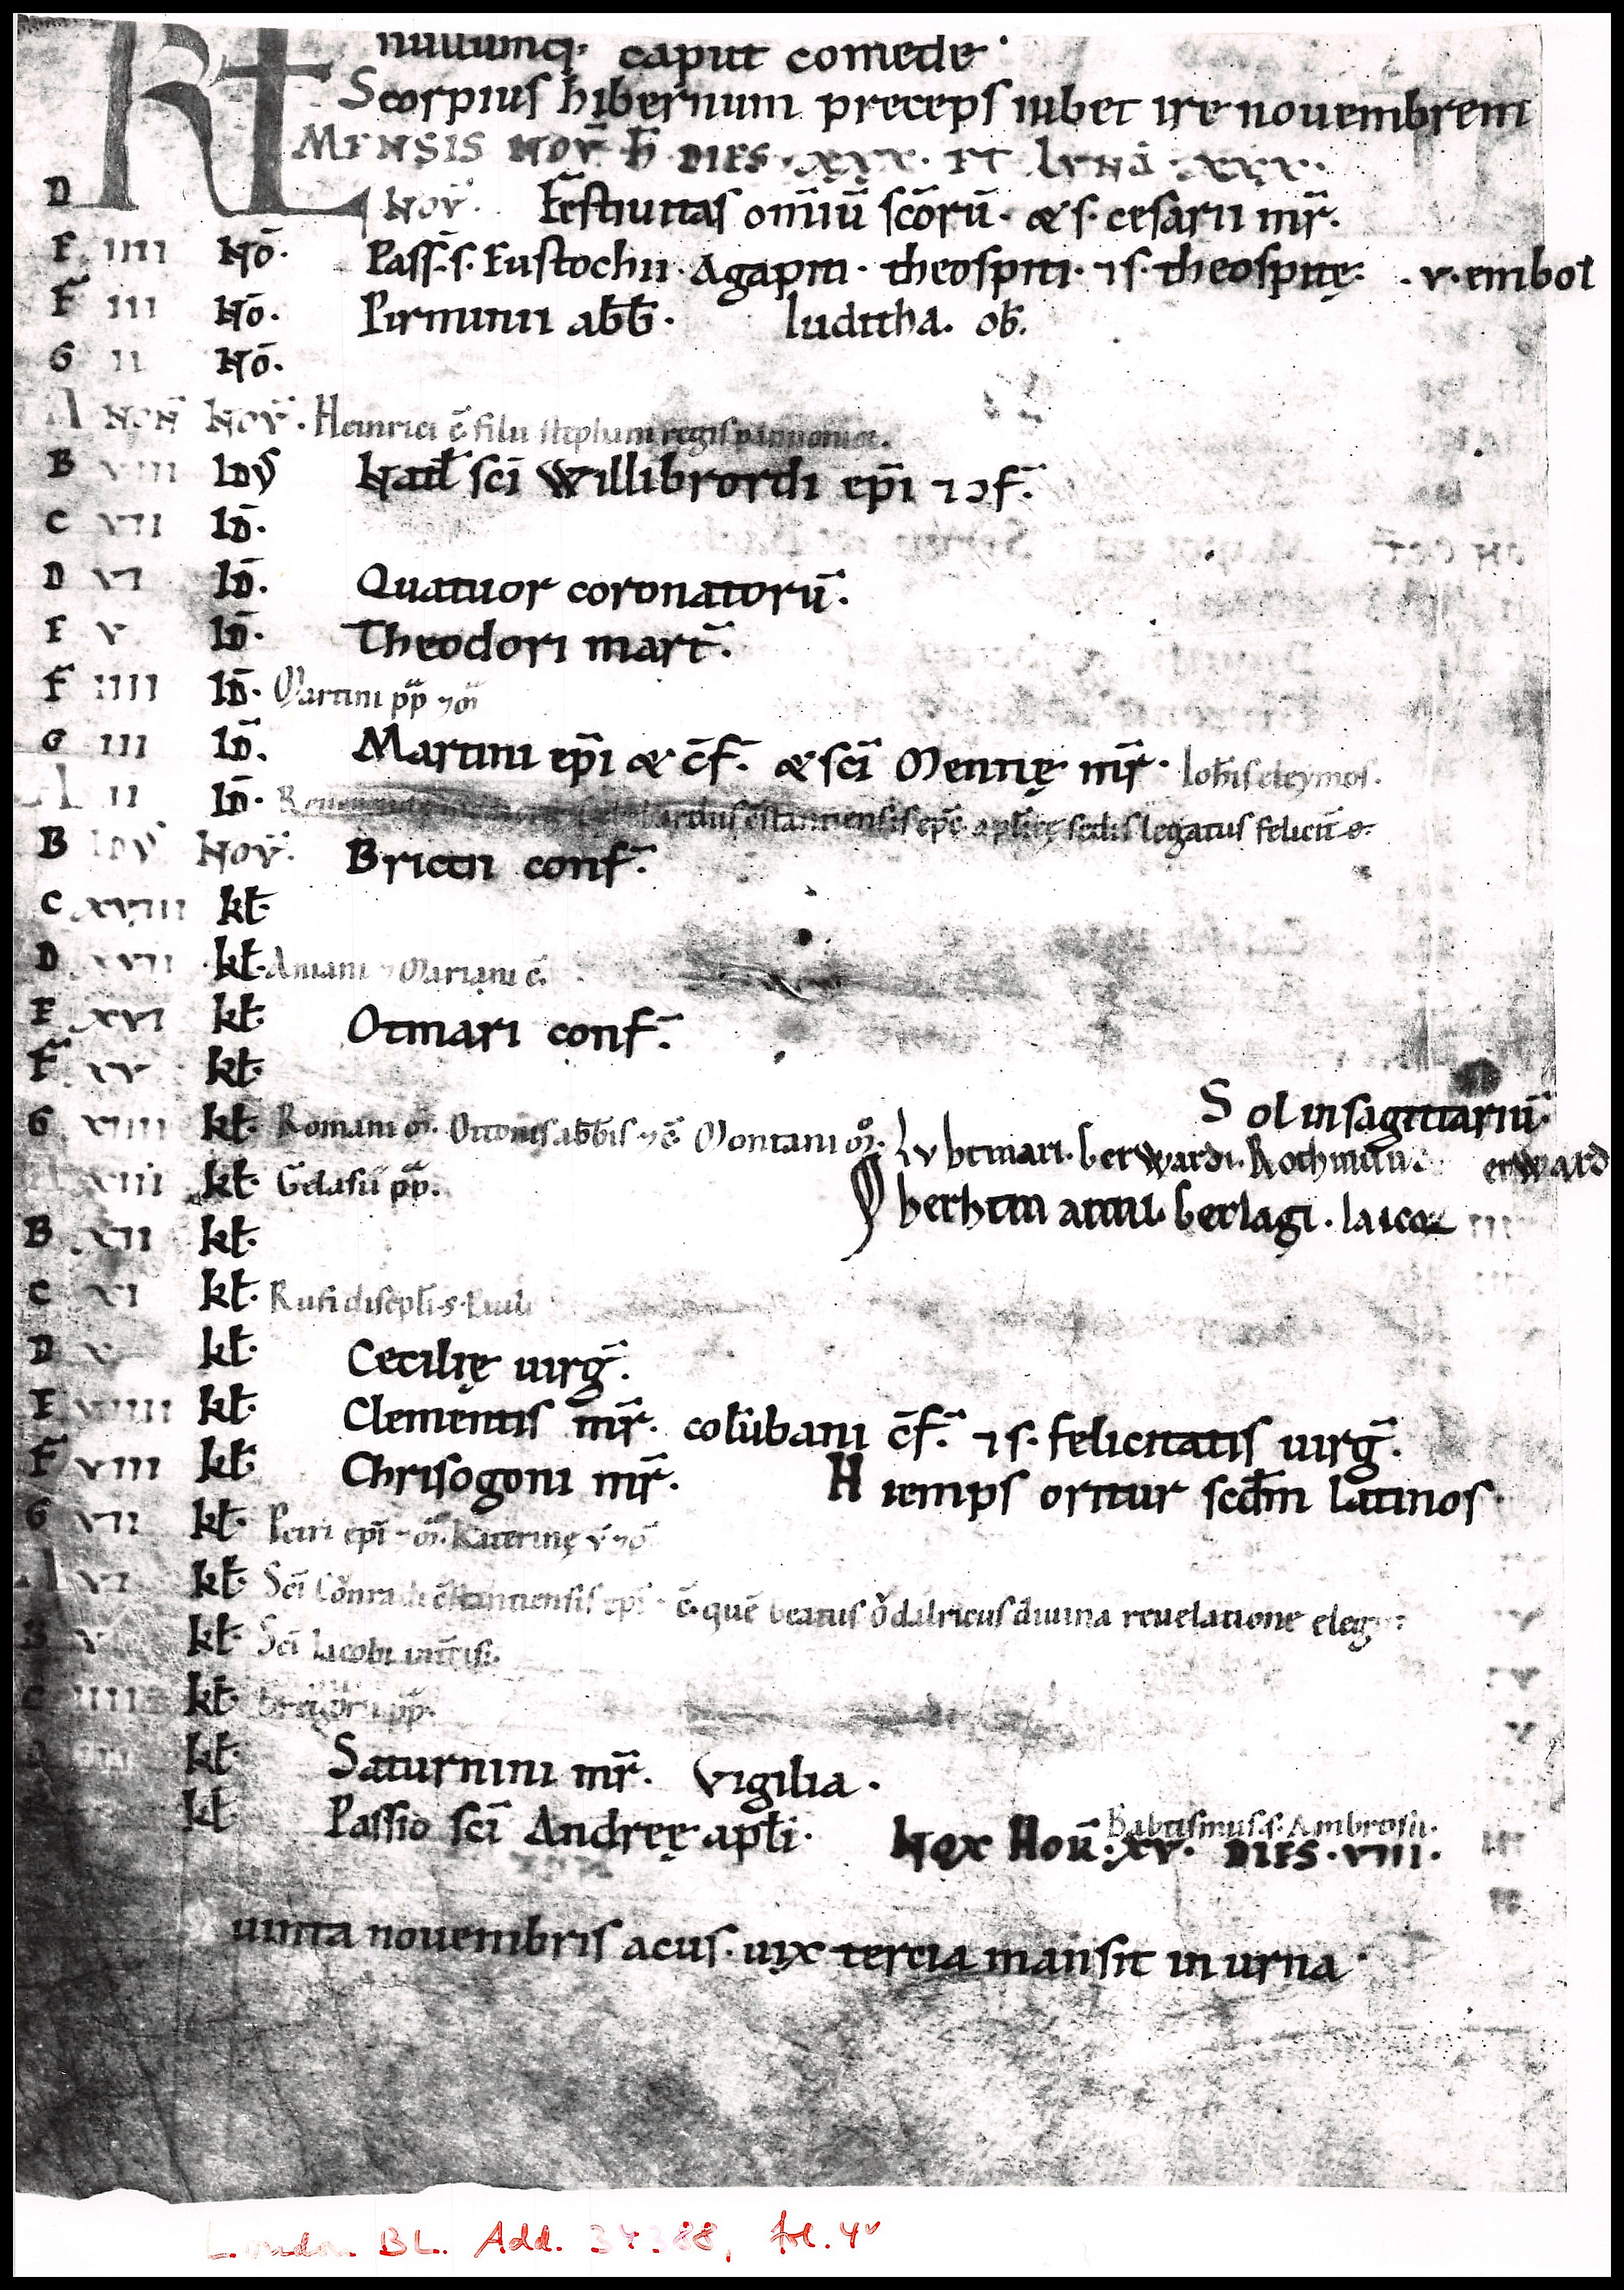 nullumq; caput comede·
Scorpius hibernum preceps iubet ire nouembrem
KL MENSIS NOV̄ H̄ DIES · XXX · ET LVNA · XXX ·
D NOV̄. Festiuitas om̄iū sc̄orū· & s· cesarii mr̄·
E IIII NŌ· Pass̄·s· Eustochii· Agapiti· theospiti· ⁊ s· theospitę· ·v·embol
F III NŌ· Pirminii ab̄b̄· Iuditha· ob̄.
G II NŌ·
A NON NOV̄· Heinrici c̄ filii stephani regis pannonię·
B VIII IDV̄ Natł sc̄i Willibrordi ep̄i ⁊ ɔf̄·
C VII ID̄·
D VI ID̄· Quatuor coronatorū·
E V ID̄· Theodori mart̄·
F IIII ID̄· Martini pp̄ ⁊ m̄
G III ID̄· Martini ep̄i & c̄f̄· & sc̄i Mennę mr̄· Ioh̄is eleymos·
A II ID̄· c̄stantiensis ep̄c̄ ap̄licę sedis legatus felicit̄ o·
B IDV̄ NOV̄· Briccii conf̄·
C XVIII kł·
D XVII kł· Aniani ⁊ Mariani c̄·
E XVI kł· Otmari conf̄·
F XV kł·
Sol in sagittariū·
G XIIII kł· Romani m̄· Ottonis ab̄b̄is ⁊ c̄· Montani m̄· Lvbtmari· berwardi· erward
XIII kł· Gelasii pp̄· berhtm annu berlagi· laicoꝝ
B XII kł·
C XI kł· Rufi discipl̄i·s·Pauli
D X kł· Cecilię uirḡ·
E VIIII kł· Clementis mr̄· colūbani c̄f̄· ⁊ s· felicitatis uirḡ·
F VIII kł· Chrisogoni mr̄· Hiemps oritur scd̄m latinos·
G VII kł· Petri ep̄i ⁊ m̄· Katerinę v̄ ⁊ m̄
A VI kł· Sc̄i Cǒnradi c̄stantiensis ep̄i ⁊ c̄· quē beatus ǒdalricus diuina reuelatione elegit·
B V kł· Sc̄i Iacobi int̄cisi·
C IIII kł· Gregorii pp̄·
D III kł· Saturnini mr̄· Vigilia·
kł Passio sc̄i Andreę apłi· Babtismus·s·Ambrosii·
Nox Hoū·XV· DIES·VIII·
uinta nouembris acus· uix tercia mansit in urna·
London BL. Add. 34388, fol. 4v